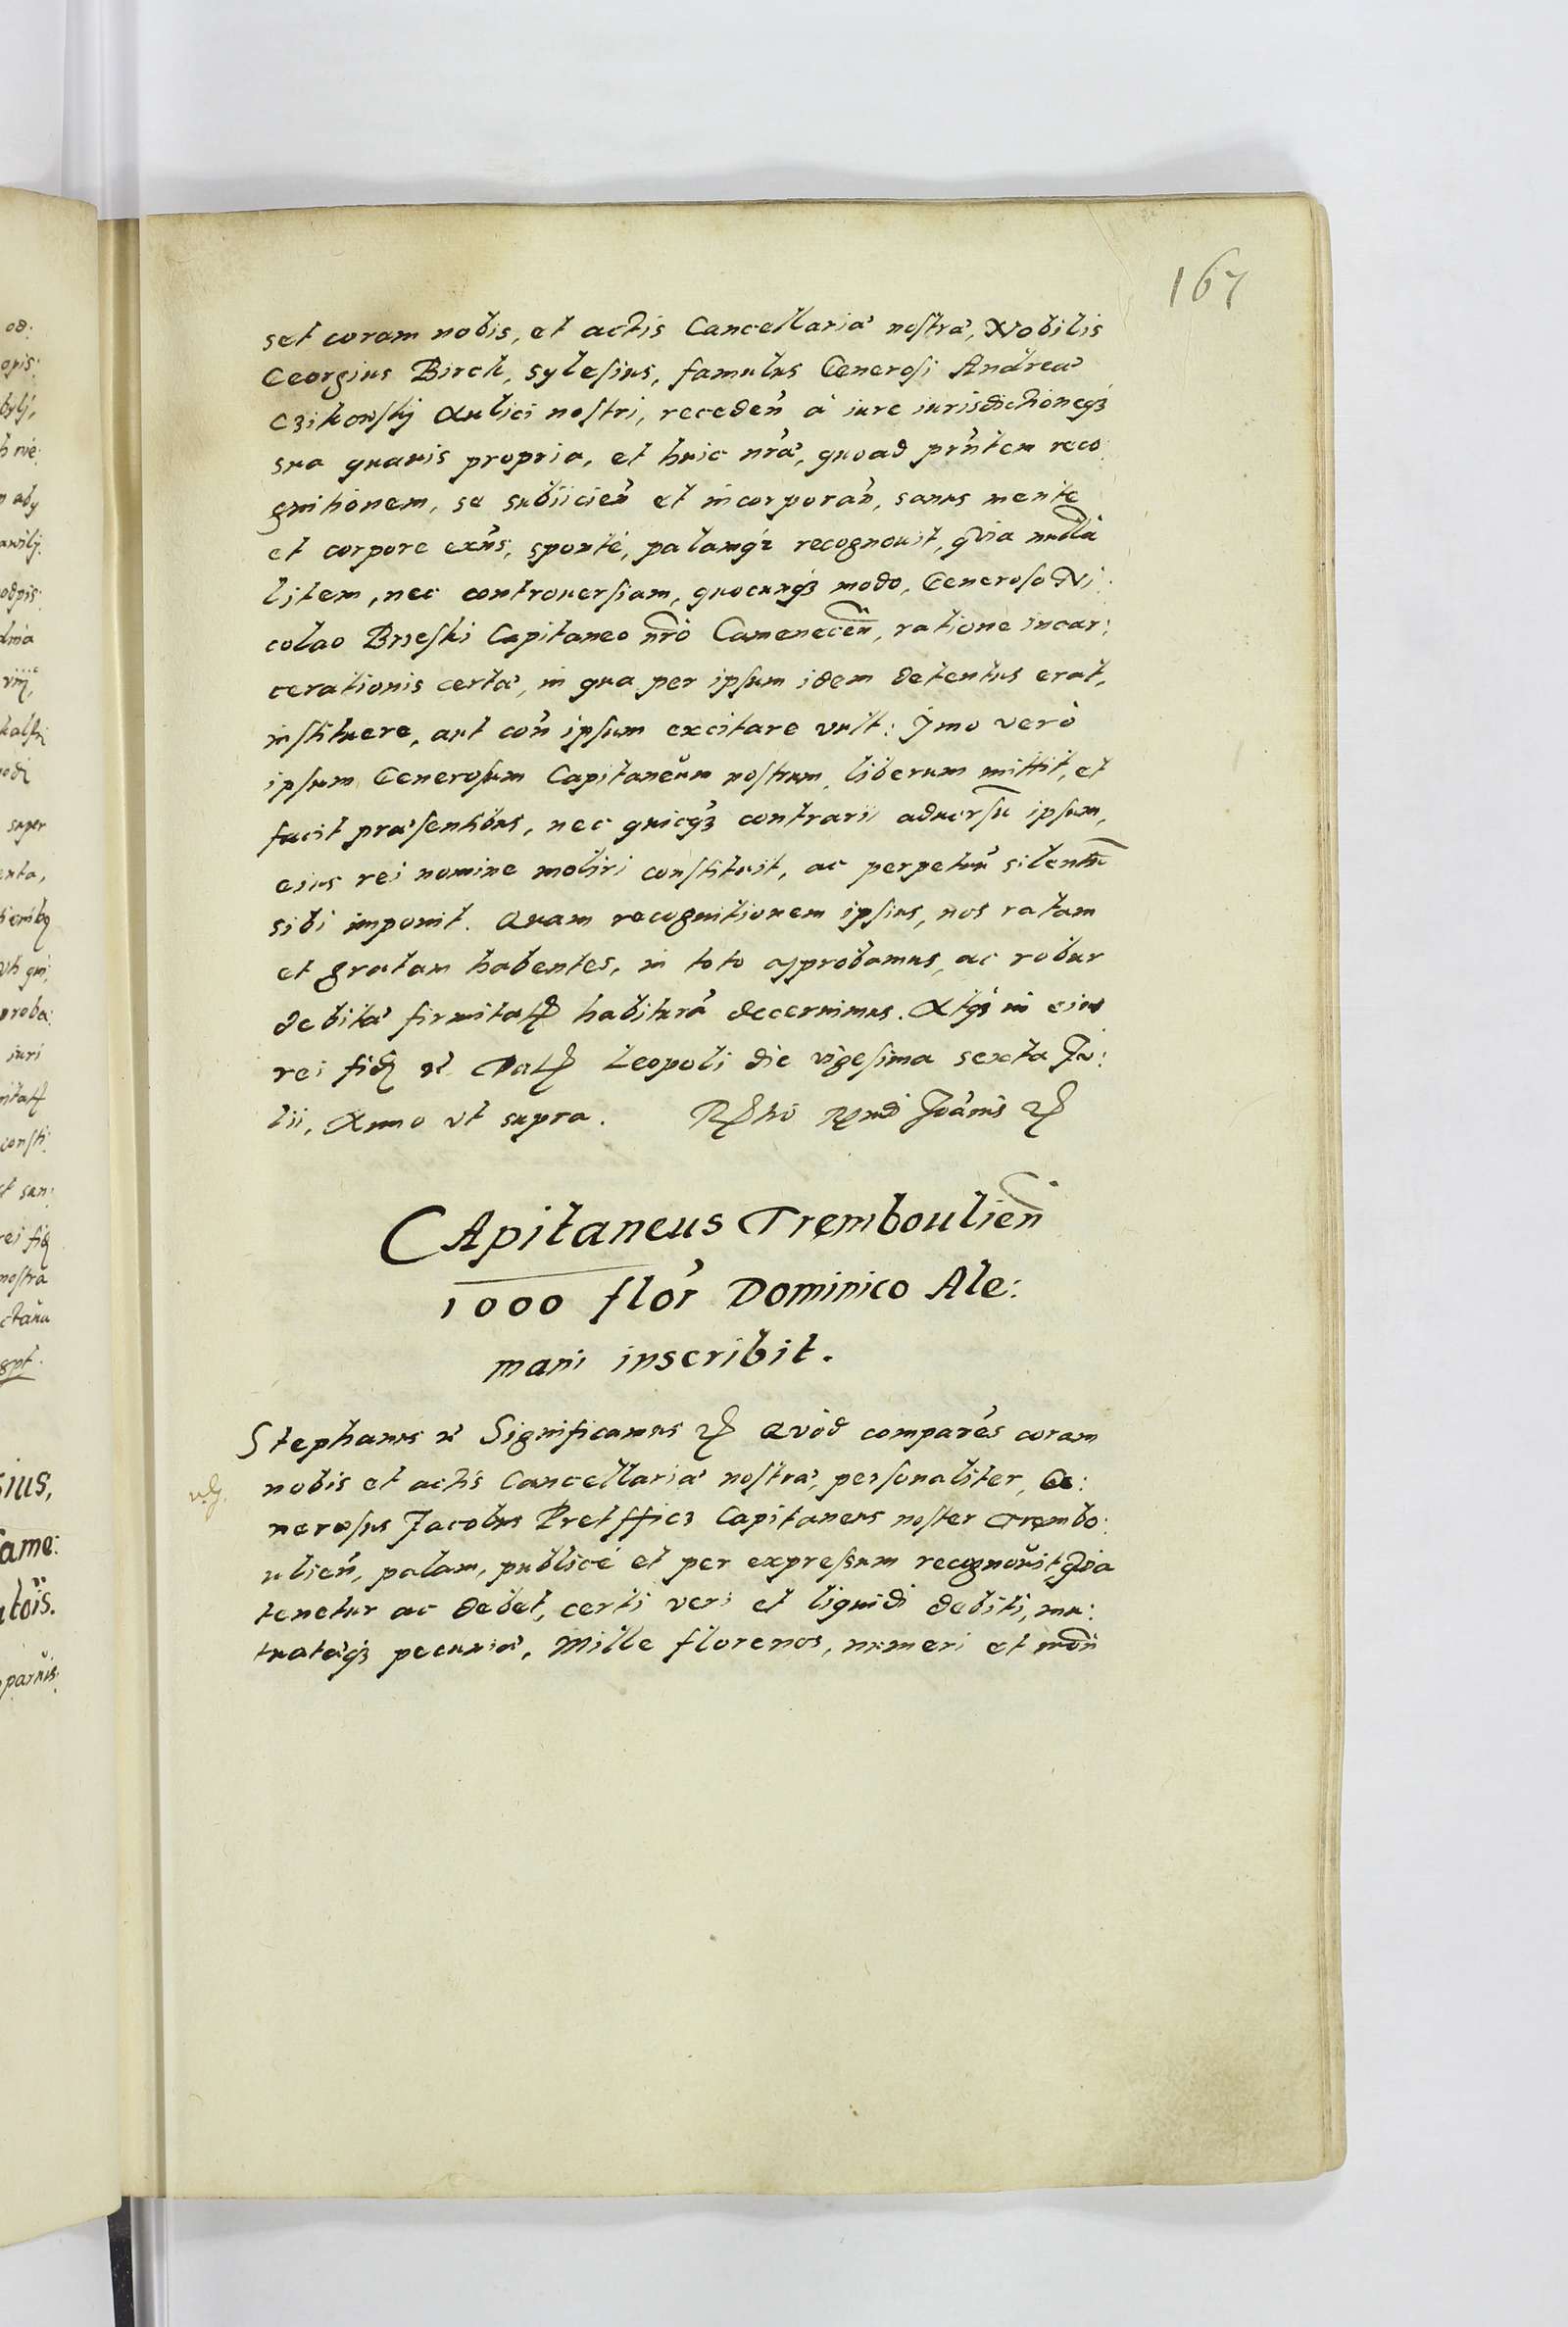 167
set coram nobis, et actis Cancellariæ nostræ, Nobilis
Georgius Birck, Sylesius, famulus Generosi Andreæ
Czikowskj Aulici nostri, receden̄ à iure iurisdictioneq3
sua quauis propria, et huic nrã, quoad prñtem reco:
gnitionem, se subiicien̄ et incorporan̄, sanus mente
et corpore exñs, spontè, palamq3 recognouit, Quia nullã
litem, nec controuersiam, quocunq3 modo, Generoso Ni:
colao Brzeski Capitaneo nrõ Camenecen̄, ratione incar:
cerationis certæ, in qua per ipsum idem detentus erat,
instituere, aut con̄ ipsum excitare vult: Jmo verò
ipsum Generosum Capitaneum nostrum, liberum mittit, et
facit præsentibus, nec quicq3 contrarii aduersũ ipsum,
eius rei nomine moliri constituit, ac perpetuũ silentiũ
sibi imponit. Quam recognitionem ipsius, nos ratam
et gratam habentes, in toto approbamus, ac robur
debitæ firmitat habiturã decernimus. Atq3 in eius
rei fid Dat Leopoli die vigesima sexta Ju:
lii, Anno vt supra. Joãnis
CApitaneus Tremboulien̄
1000 flor Dominico Ale:
mani inscribit.
Stephanus Significamus Quòd comparẽs coram
nobis et actis Cancellariæ nostræ, personaliter, Ge:
nerosus Jacobus Pretfficz Capitaneus noster Trembo:
ulien̄, palam, publicè et per expressum recognouit, Quia
tenetur ac debet, certi veri et liquidi debiti, mu:
tuatæq3 pecuniæ, Mille florenos, numeri et mon̄